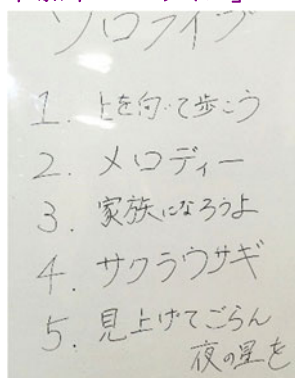 ソロライブ
1. 上を向いて歩こう
2. メロディー
3. 家族になろうよ
4. サクラウサギ
5. 見上げてごらん
夜の星を